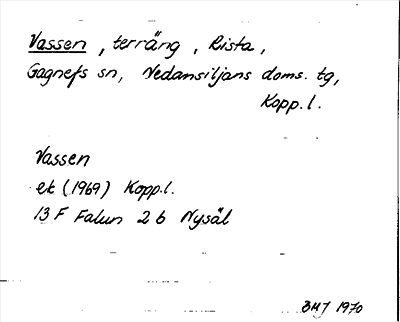 Vassen, terräng, Rista,
Gagnefs sn, Nedansiljans doms. tg,
Kopp.l.
Vassen
ek (1969) Kopp.l.
13 F Falun 2 b Nysäl
BHJ 1970